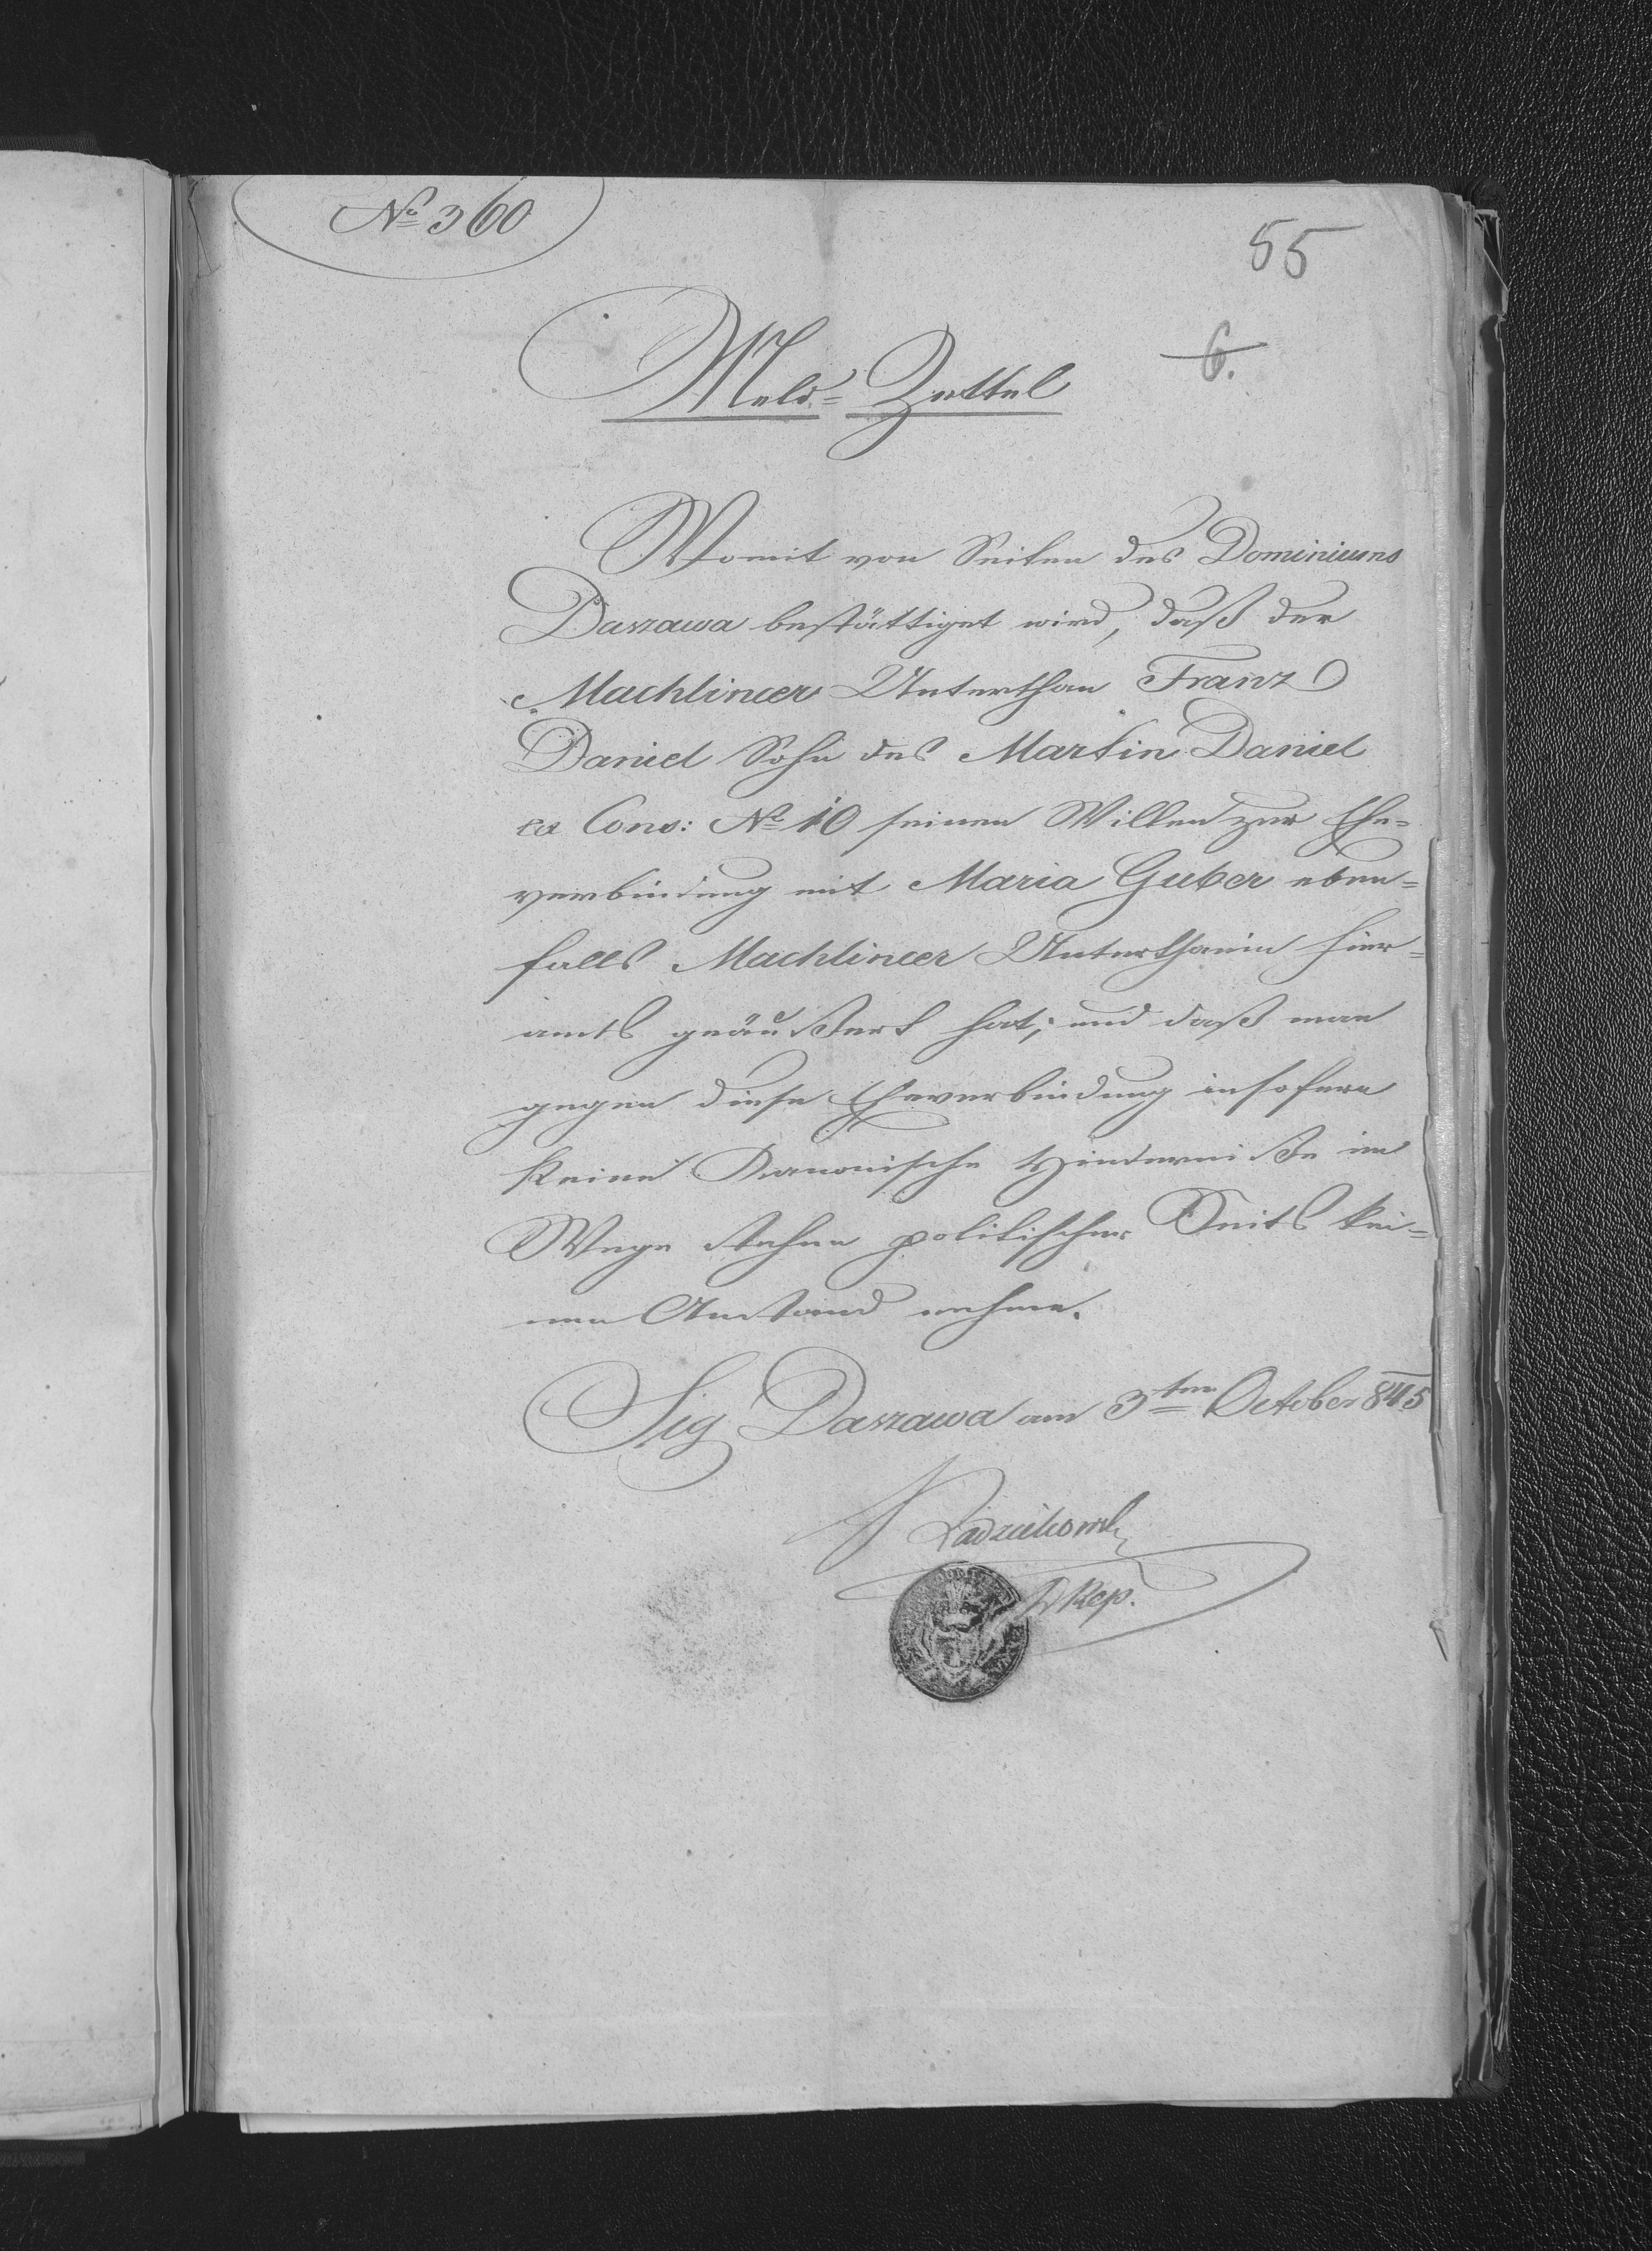 № 360
55
6.
Meld=Zettel
Womit von Seiten des Dominiums
Daszawa bestättiget wird, daß der
Machlincer Unterthan Franz
Daniel Sohn des Martin Daniel
ex Cons: № 10 seinen Willen zur Ehe=
verbindung mit Maria Guber eben=
falls Machlincer Unterthanin hier=
amts geäußert hat; und daß man
gegen diese Eheverbindung insofern
keine Kanonische Hinderniße im
Wege stehen politischer Seits kei=
nen Anstand nehme.
Sig Daszawa am 3ten October 845
Rep.